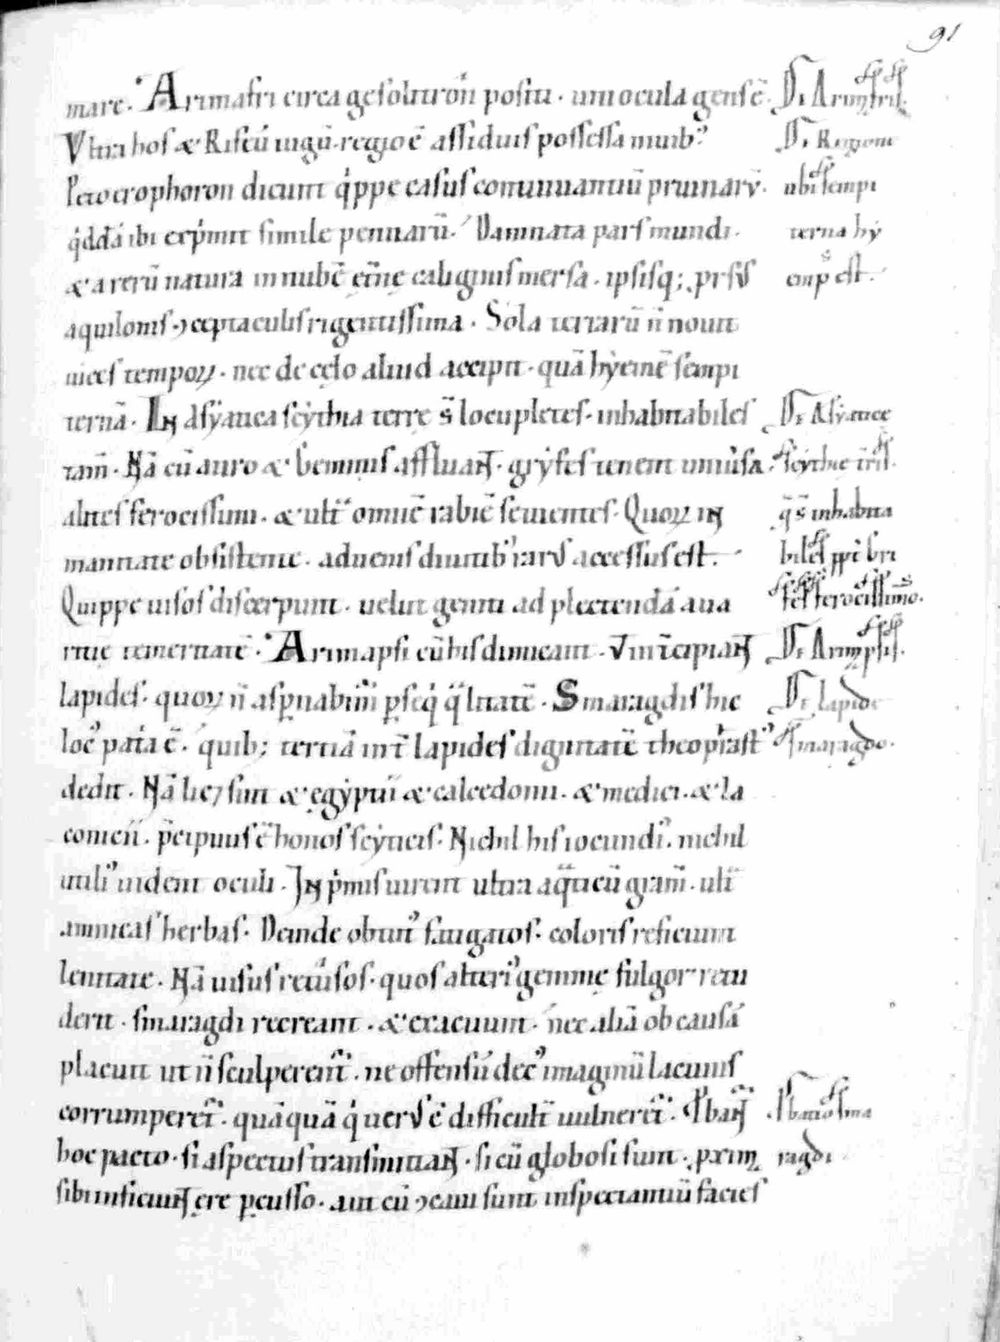 91
mare. Arimasṗi circa gesolitrōn positi. uniocula gens ē. De Arimasṗis.
Vltra hos & Rifeū iugū. regio ē assiduis possessa niuib;
Pterophoron dicunt q̇ppe casus continuantiū pruinarū.
q̇ddā ibi exp̄mit simile pennarū. Damnata pars mundi.
& a rerū natura in nubē et̄ne caliginis mersa. ipsisq; prsus
aquilonis ↄceptaculis rigentissima. Sola terrarū n̄ nouit
uices tempoꝝ. nec de cęlo aliud accipit. quā hyemē sempi
ternā. IN Asyatica scythia terre s̄ locupletes. inhabitabiles
tam̄. Nā cū auro & gemmis affluanT. gryfes tenent uniūsa.
alites ferocissimi. & ult̄ omnē rabiē seuientes. Quoꝝ iN
manitate obsistente. aduenis diuitib; rarus accessus est.
Quippe uisos discerpunt. uelut geniti ad plectendā aua
ritie temeritatē. Arimapsi cū his dimicant. ut int̄cipianT
lapides. quoꝝ n̄ asp̱nabim̄ p̱seq̇ q̈litatē. Smaragdis hic
loc; pat̄a ē. quib; tertiā int̄ lapides dignitatē theoprast;
dedit. Nā licꝫ sint & egyptii & calcedonii. & medici. & la
conicii. p̄cipuus ē honos scyticis. Nichil his iocundi;. nichil
utili; uident oculi. IN p̄mis uirent ultra aq̈ticū gram̄. ult̄
amnicas herbas. Deinde obtuit; fatigatos. coloris reficiunt
lenitate. Nā uisus retūsos. quos alteri; gemme fulgor retu
derit. smaragdi recreant. & exacuunt. nec aliā ob causā
placuit ut n̄ sculperent̄. ne offensū dec; imaginū lacunis
corrumperet̄. quāquā q̇ uerus ē difficult̄ uulneret̄. P̱banT
hoc pacto. si aspectus transmittanT. si cū globosi sunt. p̱xima
sibi inficiunT aere p̱cusso. aut cū ↄcaui sunt inspectantiū facies
De Regioni
ubi sempi
terna hy
emps est.
De Asyatice
scythie t̄ris.
q̄ s̄ inhabita
biles
fes ferocissimos.
De Arimapsis.
De lapide
smaragdo.
P̱batio sma
ragdi